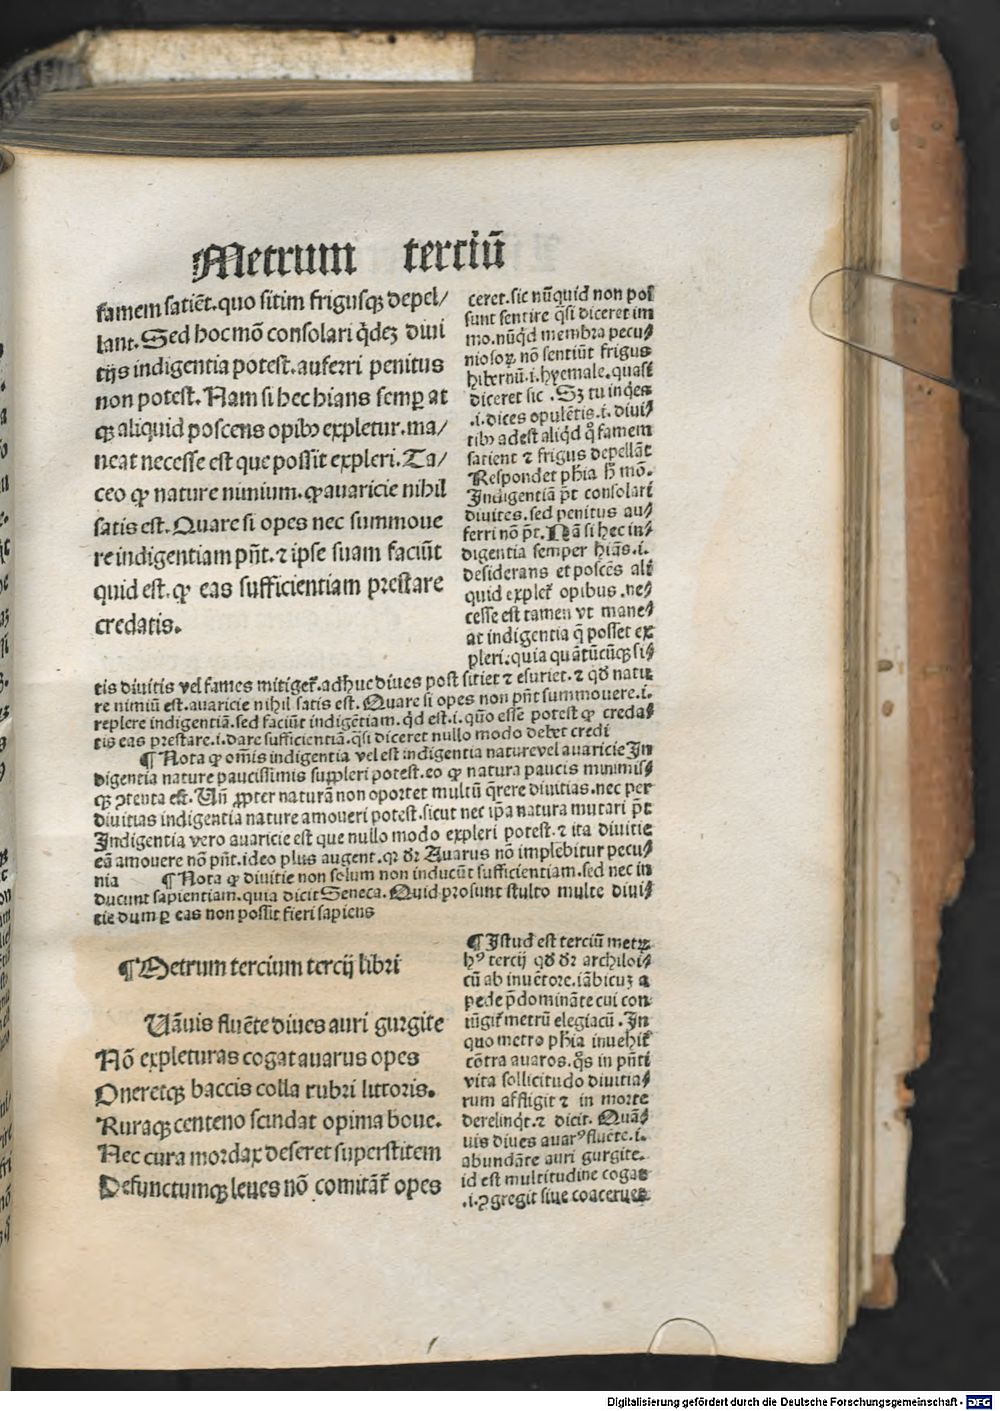 Metrum terciū
famem satiēt. quo sitim frigusqꝫ depel/
lant. Sed hoc mō consolari q̇dēꝫ diui
tijs indigentia potest. auferri penitus
non potest. Nam si hec hians semꝑ at
qꝫ aliquid poscens opibꝰ expletur. ma/
neat necesse est que possit expleri. Ta/
ceo ꝙ nature minimum. ꝙ auaricie nihil
satis est. Quare si opes nec summoue
re indigentiam pn̄t. ⁊ ipse suam faciūt
quid est. ꝙ eas sufficientiam prestare
credatis.
ceret. sic nūquid non pos
sunt sentire q̄si diceret im
mo. nūq̇d membra pecu⸗
niosoꝝ nō sentiūt frigus
hibernū .i. hyemale. quasi
diceret sic . Sꝫ tu inq̇es
.i. dices opulētis .i. diui⸗
tibꝰ adest aliq̇d q̊ famem
satient ⁊ frigus depellāt
Respondet ph̄ia h̄ mō.
Indigentiā pt̄ consolari
diuites. sed penitus au⸗
ferri nō pt̄. Nā si hec in⸗
digentia semper hiās .i.
desiderans et poscēs ali
quid explet᷑ opibus . ne⸗
cesse est tamen vt mane⸗
at indigentia q̄ posset ex
pleri. quia quātūcūqꝫ si⸗
tis diuitis vel fames mitiget᷑. adhuc diues post sitiet ⁊ esuriet. ⁊ qd̄ natu
re nimiū est. auaricie nihil satis est. Quare si opes non pn̄t summouere .i.
replere indigentiā. sed faciūt indigētiam. q̇d est .i. quō esse potest ꝙ creda⸗
tis eas prestare .i. dare sufficientiā. q̄si diceret nullo modo debet credi
¶ Nota ꝙ om̄is indigentia vel est indigentia nature vel auaricie In
digentia nature paucissimis suppleri potest. eo ꝙ natura paucis minimis⸗
qꝫ ↄtenta est. Vn̄ ꝓpter naturā non oportet multū q̄rere diuitias. nec per
diuitias indigentia nature amoueri potest. sicut nec ip̄a natura mutari pt̄
Indigentia vero auaricie est que nullo modo expleri potest. ⁊ ita diuitie
eā amouere nō pn̄t. ideo plus augent. qꝛ dr̄ Auarus nō implebitur pecu⸗
nia ¶ Nota ꝙ diuitie non solum non inducūt sufficientiam. sed nec in
ducunt sapientiam. quia dicit Seneca. Quid prosunt stulto multe diui⸗
tie dum ꝑ eas non possit fieri sapiens
¶ Metrum tercium tercij libri
Uāuis fluēte diues auri gurgite
Nō expleturas cogat auarus opes
Oneretqꝫ baccis colla rubri littoris.
Ruraqꝫ centeno scindat opima boue.
Nec cura mordax deseret superstitem
Defunctumqꝫ leues nō comitāt᷑ opes
¶ Istud est terciū metꝝ
hꝰ tercij qd̄ dr̄ archiloi⸗
cū ab inuētore. iābicuꝫ a
pede p̄domināte cui con
iūgit᷑ metrū elegiacū . In
quo metro ph̄ia inuehit᷑
cōtra auaros. q̊s in pn̄ti
vita sollicitudo diuitia⸗
rum affligit ⁊ in morte
derelinq̇t. ⁊ dicit. Quā⸗
uis diues auarꝰ fluēte .i.
abundāte auri gurgite.
id est multitudine cogat
.i. ↄgregit siue coaceruet
Digitalisierung gefördert durch die Deutsche Forschungsgemeinschaft - DFG